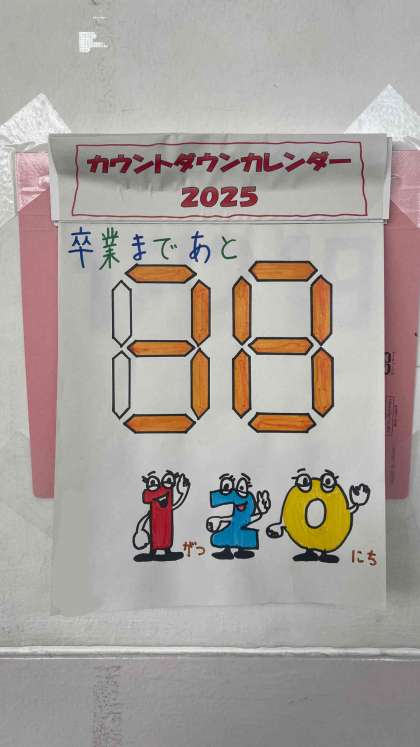 カウントダウンカレンダー
2025
卒業まであと
38
1がつ20にち